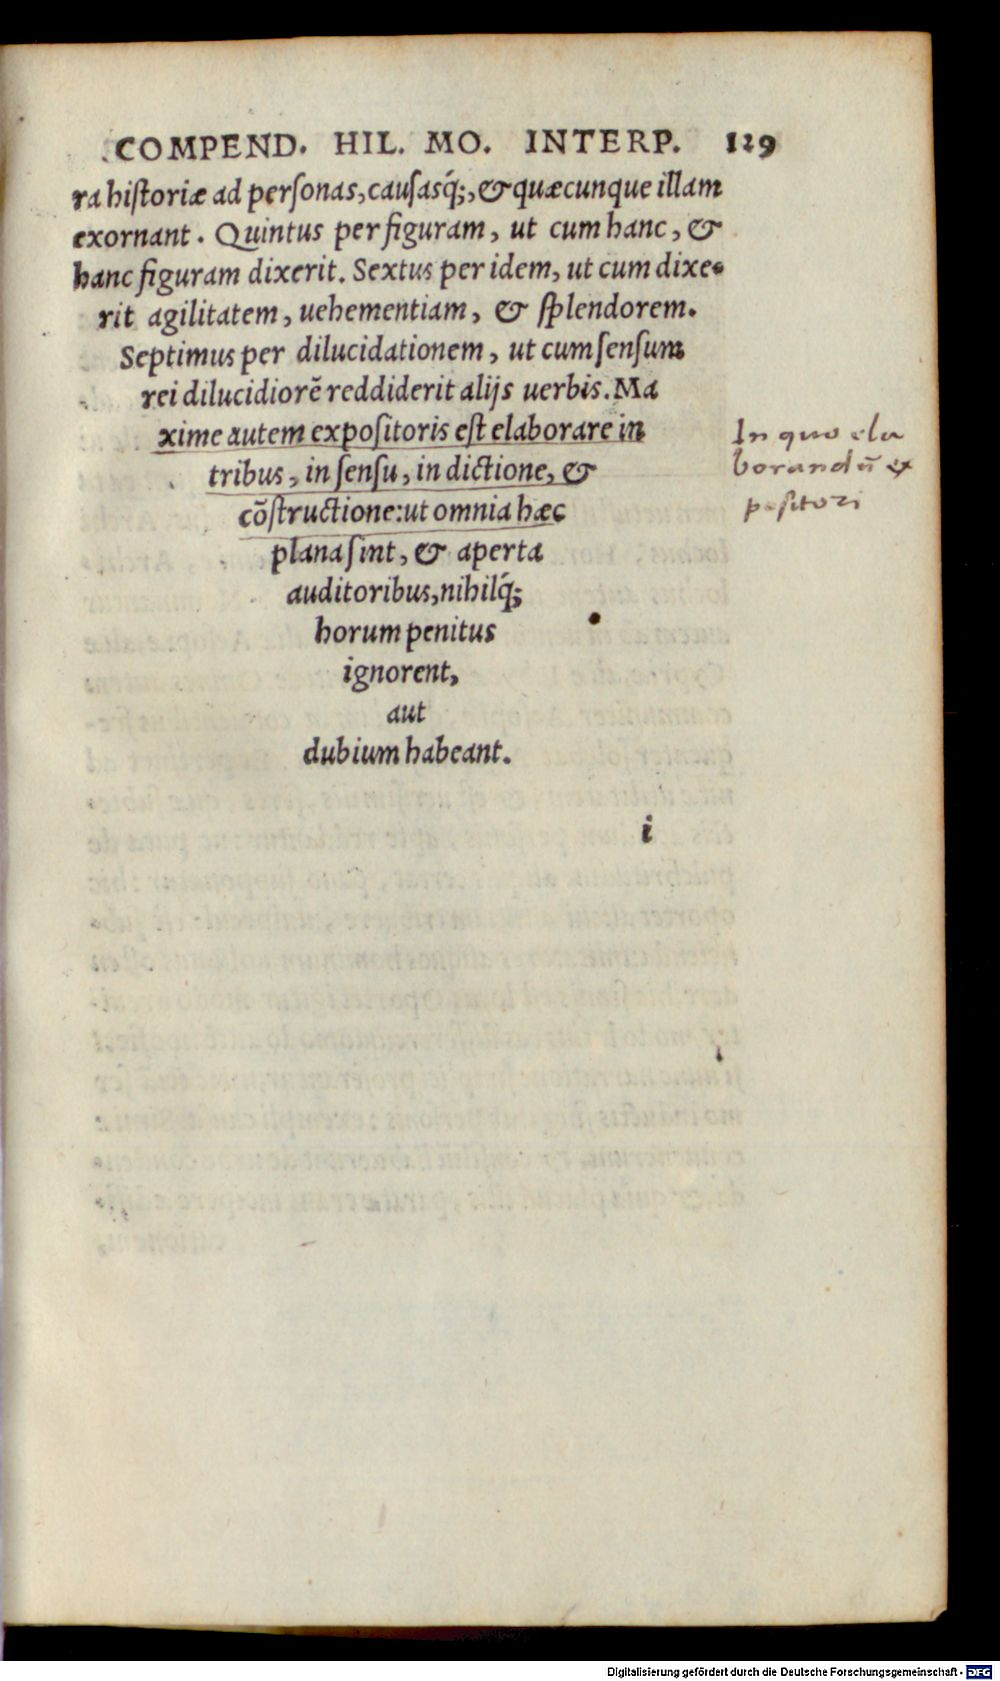 COMPEND. HIL. MO. INTERP. 129
ra historiæ ad personas, causasq́;, & quæcunque illam
exornant. Quintus per figuram, ut cum hanc, &
hanc figuram dixerit. Sextus per idem, ut cum dixe-
rit agilitatem, uehementiam, & splendorem.
Septimus per dilucidationem, ut cum sensum
rei dilucidiorē reddiderit alijs uerbis. Ma
xime autem expositoris est elaborare in
tribus, in sensu, in dictione, &
cōstructione: ut omnia hæc
plana sint, & aperta
auditoribus, nihilq́;
horum penitus
ignorent,
aut
dubium habeant.
i
In quo ela
borandū ex
positori
Digitalisierung gefördert durch die Deutsche Forschungsgemeinschaft - DFG